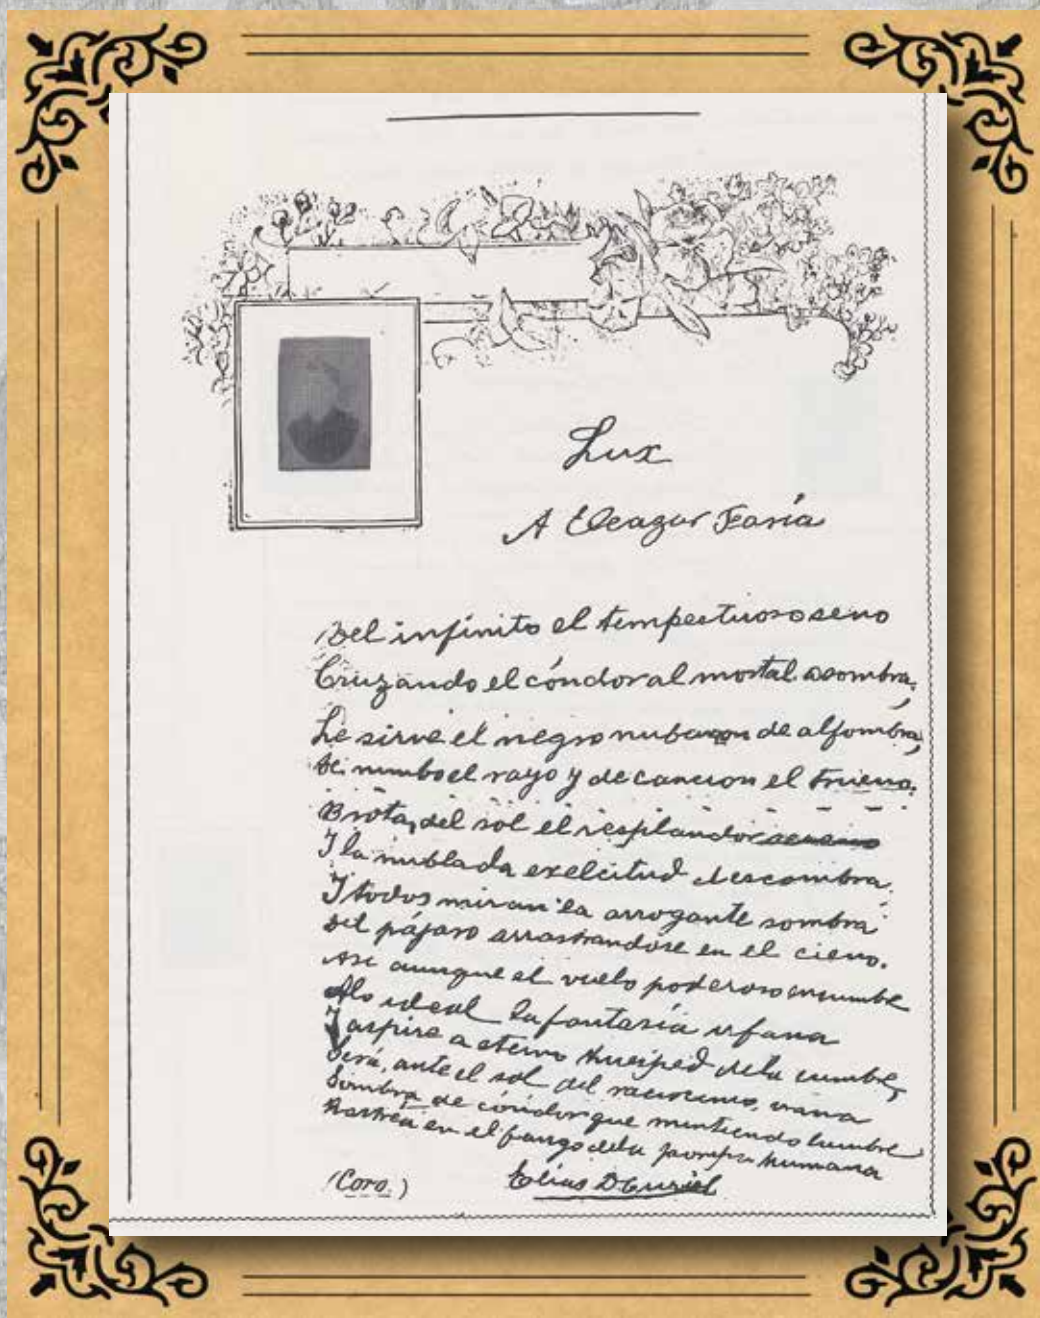 Lux
A Eleazar Faría
Del infinito el tempestuoso seno
Cruzando el cóndor al mortal asombra,
Le sirve el negro nubarron de alfombra,
De nimbo el rayo y de cancion el trueno.
Brota, del sol el resplandor sereno
I la nublada excelcitud descombra.
I todos miran la arrogante sombra
Del pájaro arrastrandose en el cieno.
Asi aunque el vuelo poderoso encumbre
A lo ideal la fantasía ufana
I aspire a eterno huesped de la cumbre,
Será, ante el sol del raciocinio, vana
Sombra de cóndor que mintiendo lumbre
Rastréa en el fango de la pompa humana
(Coro.) Elías D Curiel